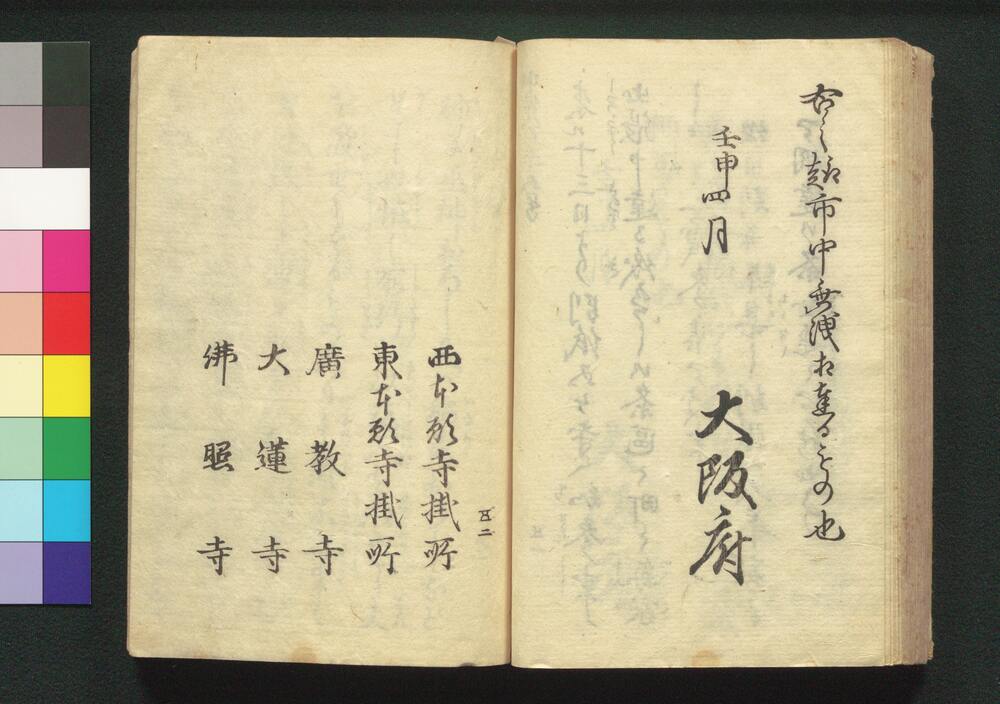 右之趣市中無洩相達るもの也
壬申四月
大阪府
五二
西本願寺掛所
東本願寺掛所
廣教寺
大蓮寺
佛照寺